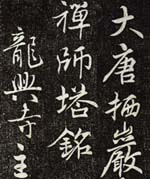 大唐栖巖
禪師塔銘
龍興寺主